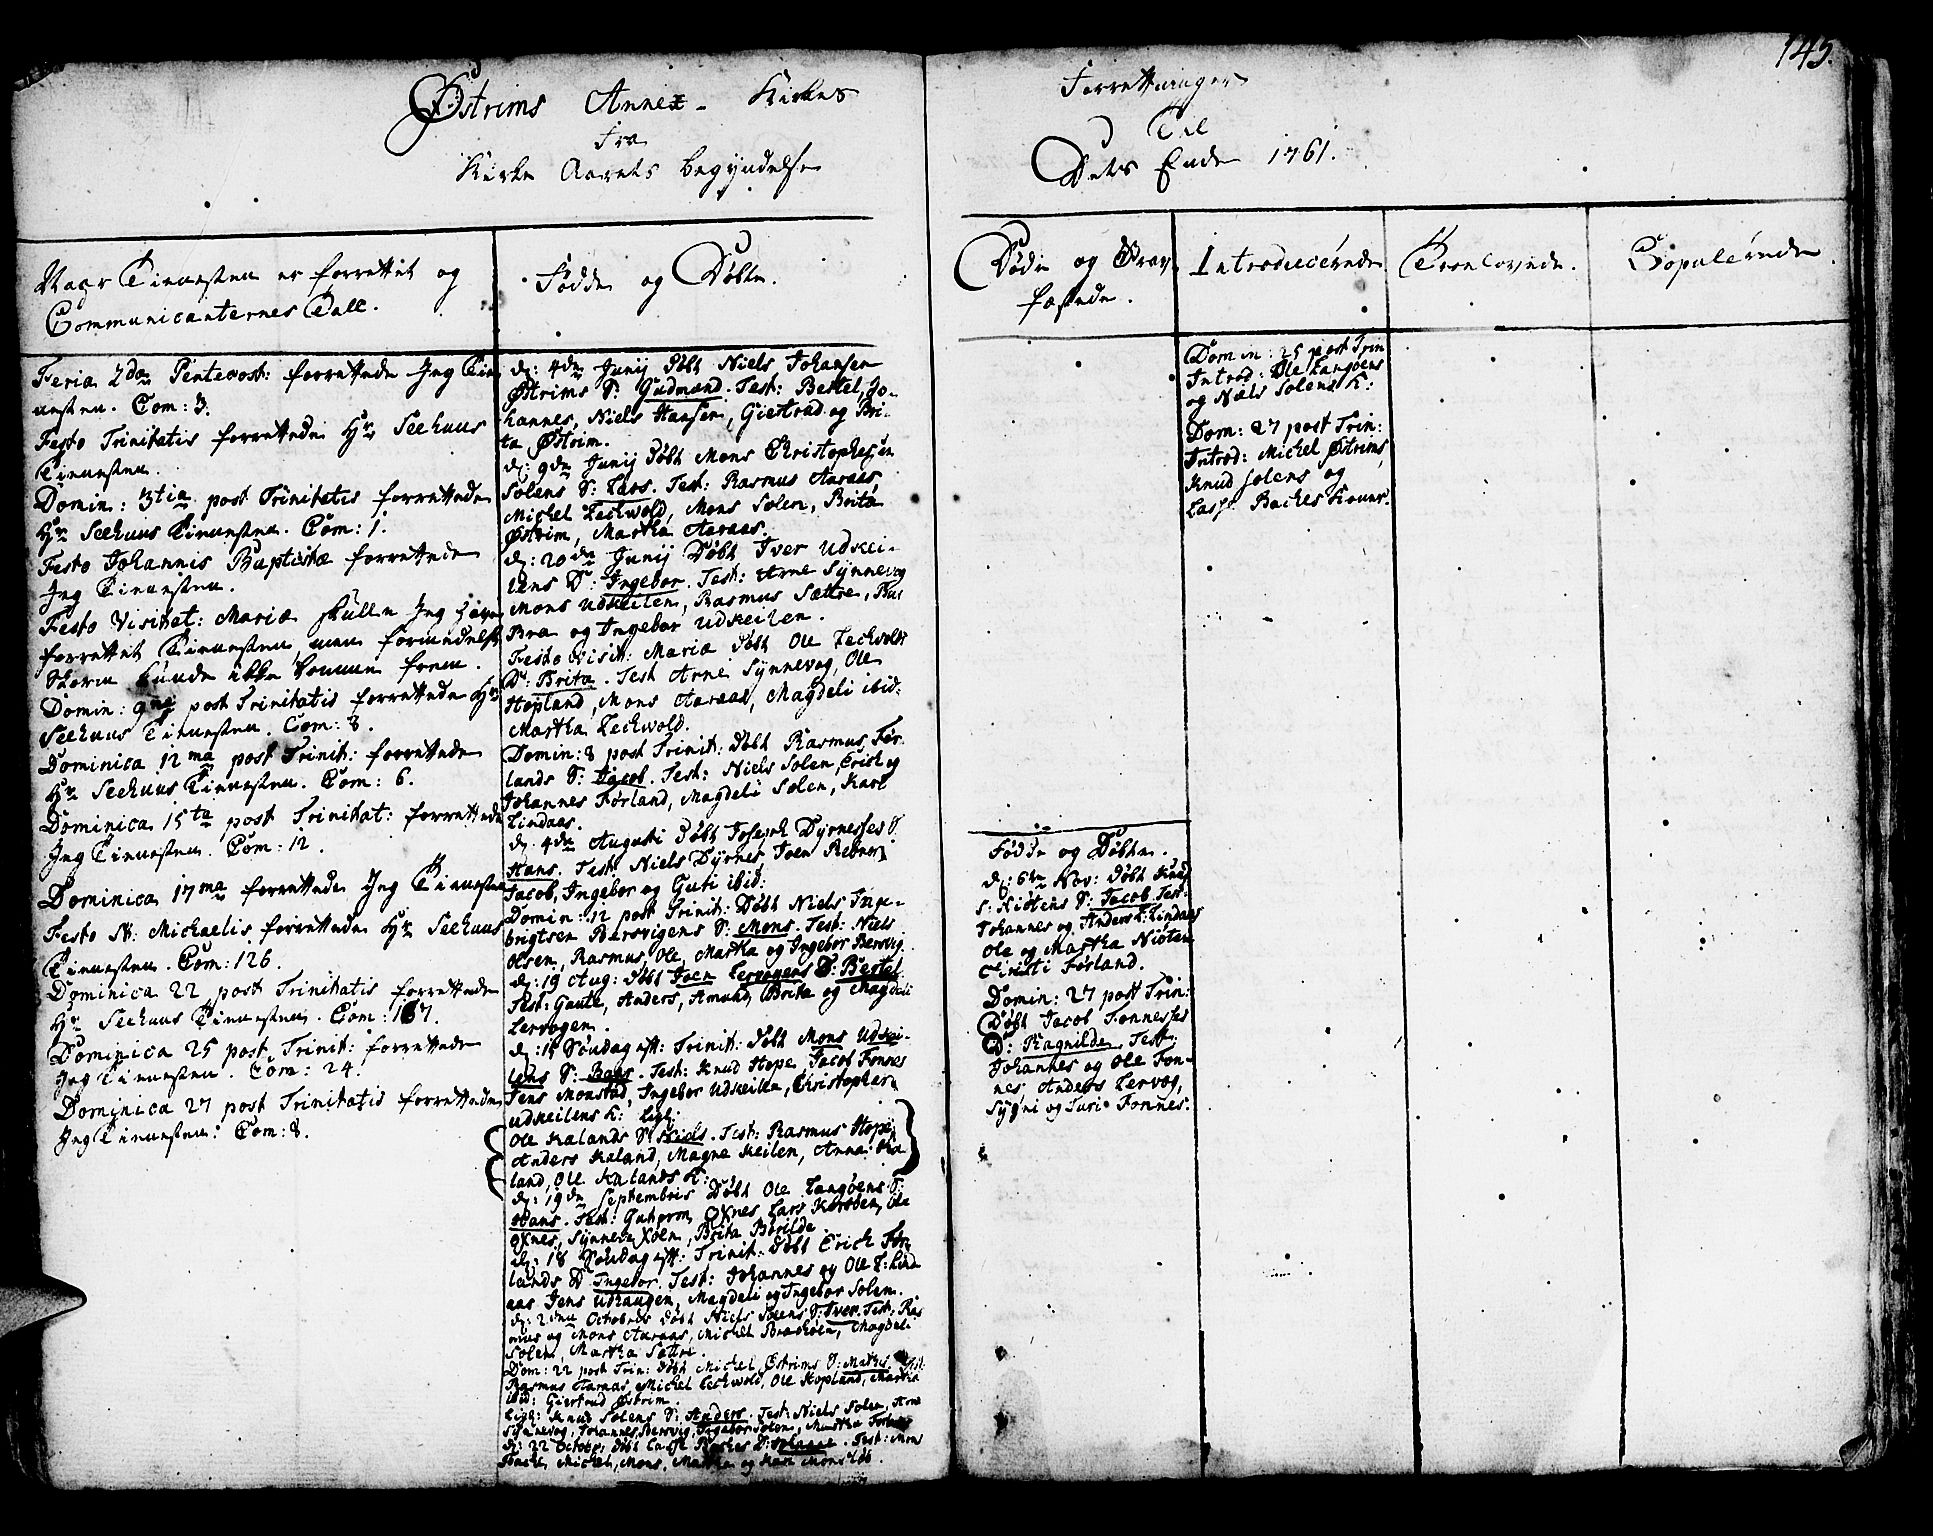 145.
Østrims Annex - Kirkes Forretninger
Fra Til
Kirke Aarets begyndelse Dets Ende 1761.
Naar Tienesten er forrettet og
Communicanternes Tall.
Feria 2da Pentecost: forrettede Jeg Tie-
nesten. Com: 3.
Festo Trinitatis forrettede Hr Seehuus
Tienesten.
Domin: 3tia post Trinitatis forrettede
Hr Seehuus Tienesten. Com: 1.
Festo Johannis Baptistæ forrettede
Jeg Tienesten.
Festo Visitat: Mariæ skulle Jeg have
forrettet Tienesten, men formedelst
Storm kunde ikke komme frem.
Domin: 9na post Trinitatis forrettede Hr
Seehuus Tienesten. Com: 8.
Dominica 12ma post Trinit: forrettede
Hr Seehuus Tienesten. Com: 6.
Dominica 15ta post Trinitat: forrettede
Jeg Tienesten. Com: 12.
Dominica 17ma forrettede Jeg Tienesten
Festo St: Michaelis forrettede Hr Seehuus
Tienesten. Com: 126.
Dominica 22 post Trinitatis forrettede
Hr Seehuus Tienesten. Com: 167.
Dominica 25 post Trinit: forrettede
Jeg Tienesten. Com: 24.
Dominica 27 post Trinitatis forrettede
Jeg Tienesten: Com: 8.
Fødde og Døbte.
d: 4de Junij Døbt Niels Johansen
Østrims S: Gudmund. Test: Bestel, Jo-
hannes, Niels Hansen, Giertrud og Bri-
ta Østrim.
d: 9de Junij Døbt Mons Christophersen
Solens S: Lars. Test: Rasmus Aaraas,
Michel Lechwold, Mons Solen, Brita
Østrim, Martha Aaraas.
d: 20de Junij Døbt Iver Udkei-
lens D: Ingebor. Test: Arne Synnevog
Mons Udkeilen, Rasmus Sættre, Bar
Bra og Ingebor Udkeilen.
Festo Visit: Mariæ Døbt Ole Lechwolds
D: Brita. Test Arne Synnevog, Ole
Hopland, Mons Aaraas, Magdeli ibid:
Martha Lechwold.
Domin: 8 post Trinit: Døbt Rasmus Før-
lands S: Jacob. Test: Niels Solen, Erich og
Johannes Førland, Magdeli Solen, Kari
Lindaas.
d: 4de Augusti Døbt Joseph Dyrnesses S:
Hans. Test: Niels Dyrnes, Joen
Jacob, Ingebor og Guri ibid:
Domin: 12 post Trinit: Døbt Niels Inge-
brigtsen Børsvigens S: Mons. Test: Niels
Olsen, Rasmus, Ole, Martha og Ingebor Børsvig.
d: 19 Aug: Døbt Joen Lervogens D: Bestel
Test: Gaute, Anders, Amund, Brita og Magdeli
Lervogen.
d: 15 Søndag eft: Trinit: Døbt Mons Udkei-
lens S: Test: Knud Hope, Jacob Fonnes
Jens Monstad, Ingebor Udkeilen, Christophers
udkeilens K: ligl:
Ole Kalands S: Niels. Test: Rasmus Hope,
Anders Kaland, Magne Keilen, Anna Ka
land, Ole Kalands K:
d: 19de Septembris Døbt Ole Langøens S:
Hans. Test: Oxnes Lars
Oxnes, Brita
d: 18 Søndag eft: Trinit: Døbt Erich Før
lands D: Ingebor. Test: Johannes og Ole Lind
aas Jens Udhaugen, Magdeli og Ingebor Solem.
d: 2den Octobris Døbt Niels Solens S: Iver. Test: Ras
mus og Mons Aaraas, Michel Magdeli
Solen, Martha Sættre.
Dom: 22 post Trin: Døbt Michel Østrims S: Test:
Rasmus Aaraas, Michel Lechwold, Ole Hopland, Martha
ibid: Giertrud Østrim.
ligl: Knud Solens S: Anders. Test: Niels Solen, Arne
Synnevog, Johannes Børsvig, Ingebor Solen, Martha
d: 22 Octobr: Døbt Lasse Baches Test: Mons
Michel, Mons, Martha og Kari
Døde og Grav
fæstede.
Fødde og Døbte.
d: 6te Nov: Døbt Knud
S: Jacob Test:
Johannes og Anders Lindaas
Ole og Martha
Førland.
Domin: 27 post Trin:
Døbt Jacob Fonnesses
D: Ragnilde. Test:
Johannes og Ole Fon-
nes, Anders Lervog,
Sygni og Turi Fonnes.
Introducerede
Domin: 25 post Trin
Introd: Ole Langøens
og Niels Solens K:
Dom: 27 post Trin:
Introd: Michel Østrims
Knud Solens og
Lasse Baches Koner.
Troelovede.
Copulerede.